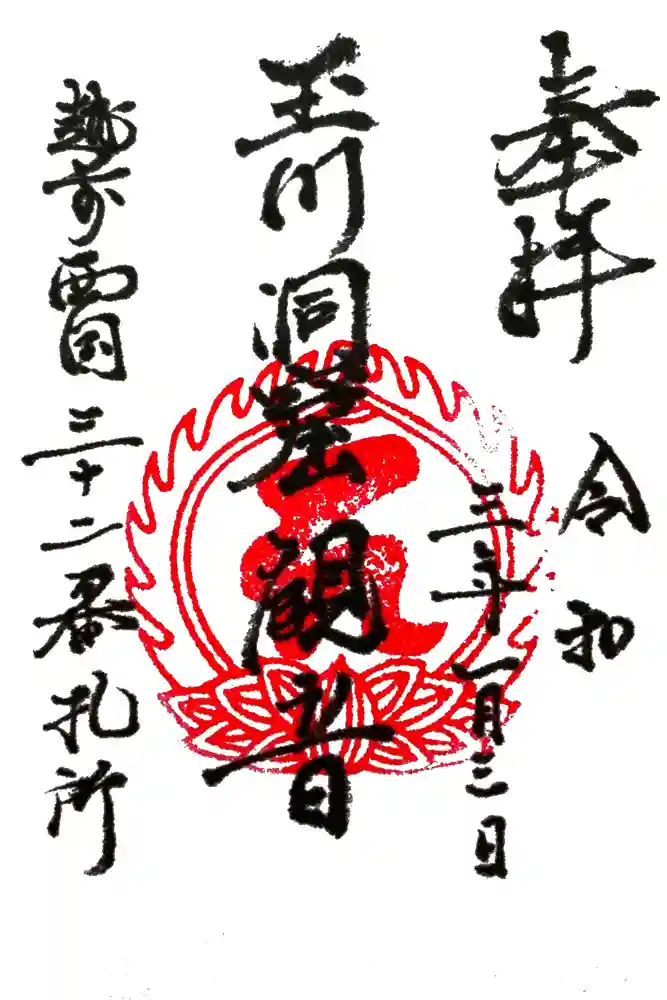 奉拝
令和
三年一月三日
玉川洞窟観音
越前西国三十二番札所